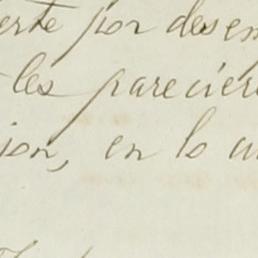 erte por desem
les parecier
ion, en lo